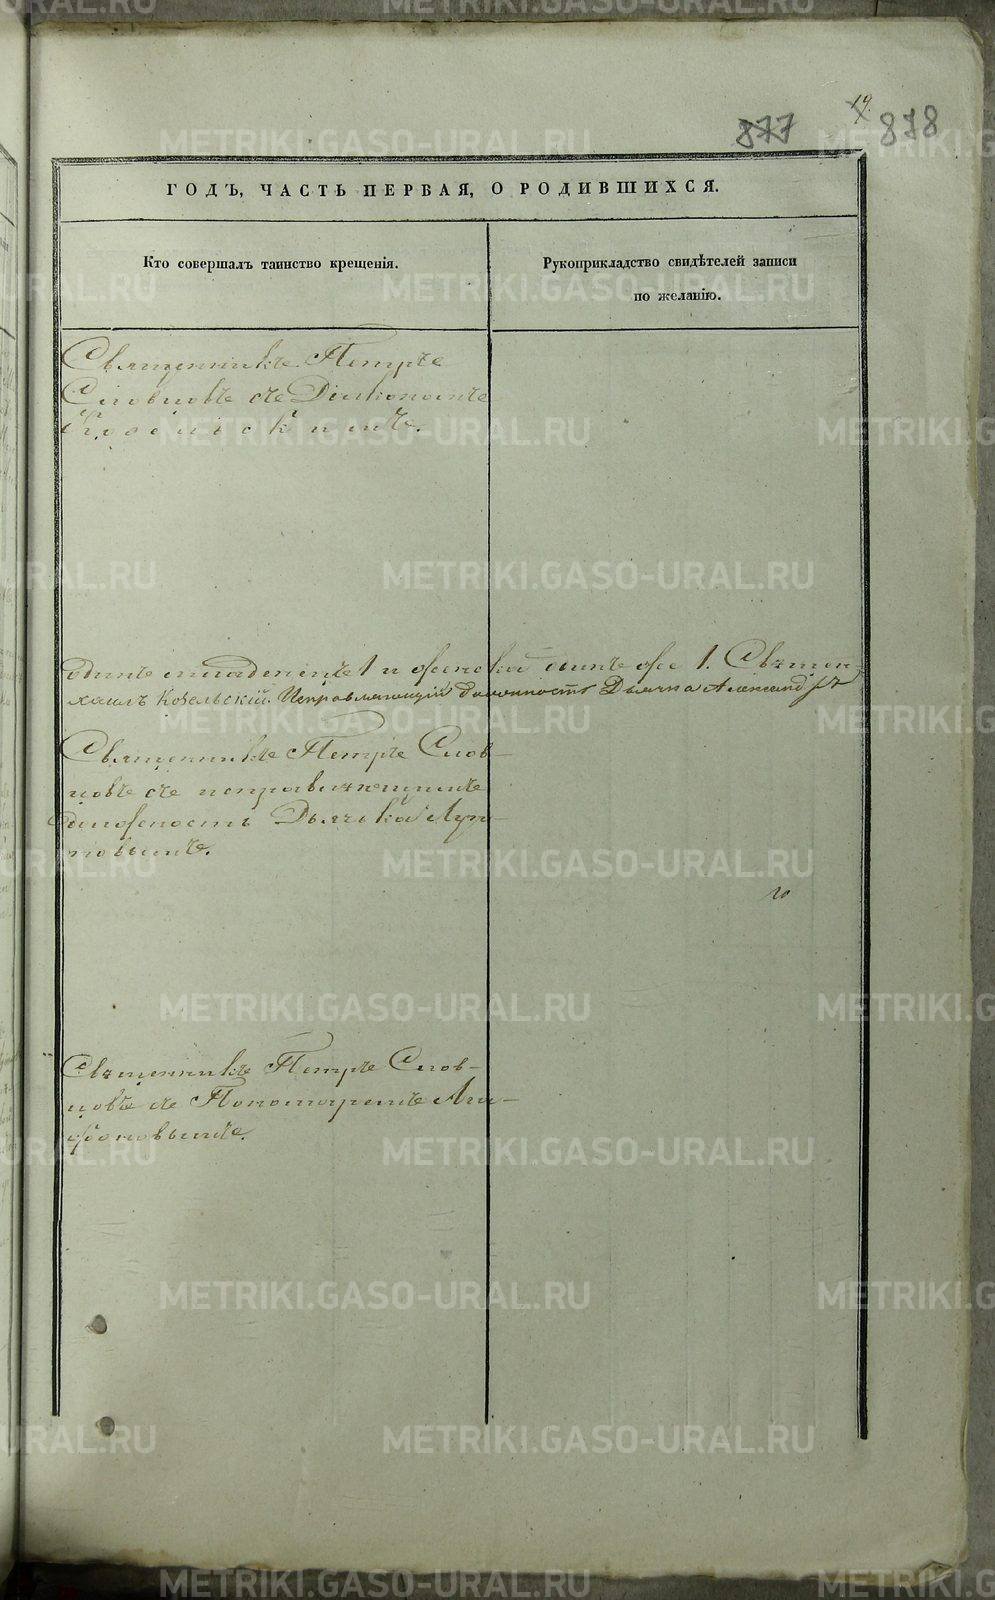 19.
877 878
ГОДЪ, ЧАСТЬ ПЕРВАЯ, О РОДИВШИХСЯ.
Кто совершалъ таинство крещенія.
Рукоприкладство свидѣтелей записи
по желанію.
Священникъ Петръ
Словцовъ съ Діакономъ
Козельскимъ.
одинъ младенецъ 1 и женска одинъ же 1. Священ-
хаилъ Козельскій. Исправляющій должность Дьячка Александръ
Священникъ Петръ Слов-
цовъ съ исправляющимъ
должность Дьячка Луп-
повымъ.
Священникъ Петръ Слов-
цовъ съ Пономаремъ Ага-
фоновымъ.
METRIKI.GASO-URAL.RU